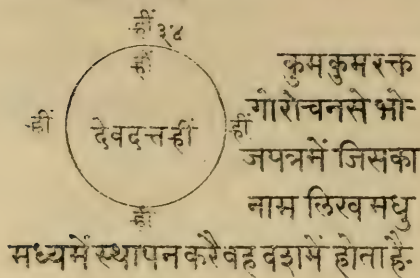 ह्रीं
३४
ह्रीं
ह्रीं देवदत्तह्रीं ह्रीं
ह्रीं
कुमकुमरक्त
गोरोचनसे भो-
जपत्रमें जिसका
नाम लिखमधु
मध्यमें स्थापन करै वह वशमें होताहै-